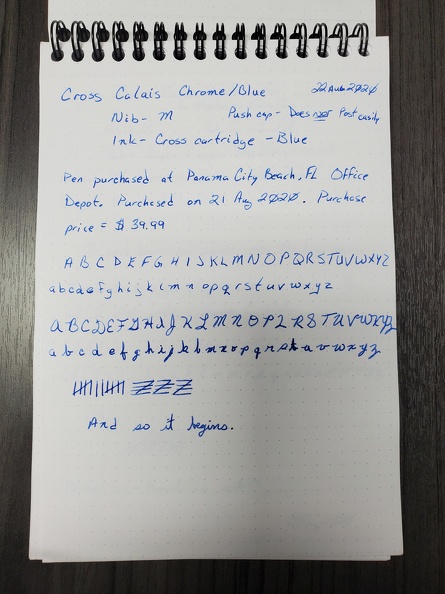 Cross Calais Chrome/Blue 22 Aug 2020
Nib- M Push cap- Does not Post easily
Ink- Cross cartridge - Blue
Pen purchased at Panama City Beach, FL Office
Depot. Purchased on 21 Aug 2020. Purchase
price = $39.99
A B C D E F G H I J K L M N O P Q R S T U V W X Y Z
a b c d e f g h i j k l m n o p q r s t u v w x y z
A B C D E F G H I J K L M N O P Q R S T U V W X Y Z
a b c d e f g h i j k l m n o p q r s t u v w x y z
And so it begins.